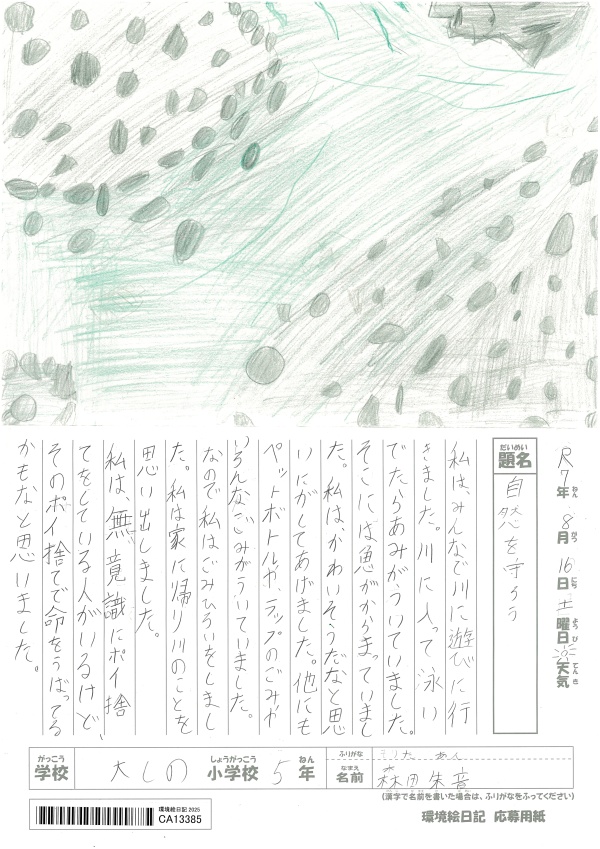 R7年 8月 16日 土曜日 天気
ねん がつ にち ようび てんき
だいめい
題名
自然を守ろう
私は、みんなで川に遊びに行
きました。川に入って泳い
でたらあみがういていました。
そこには魚がからまっていまし
た。私はかわいそうだなと思
いにがしてあげました。他にも
ペットボトルやラップのごみや
いろんなごみがういていました。
なので私はごみひろいをしまし
た。私は家に帰り川のことを
思い出しました。
私は、無意識にポイ捨
てをしている人がいるけど、
そのポイ捨てで命をうばってる
かもなと思いました。
がっこう
学校
大しの
しょうがっこう
小学校
5
ねん
年
ふりがな
もりた あん
なまえ
名前
森田 朱音
(漢字で名前を書いた場合は、ふりがなをふってください)
環境絵日記 2025
CA13385
環境絵日記 応募用紙